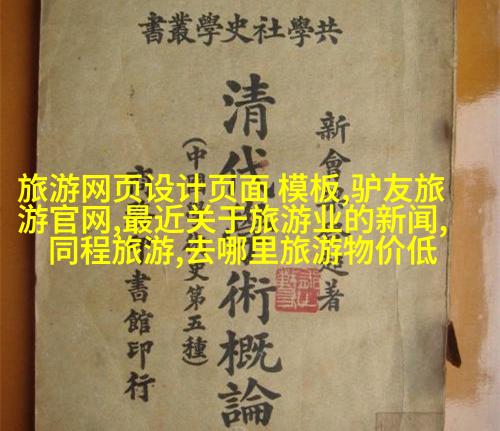 共學社史學叢書
新會
著
清代學術概論
(中
史第五種)
書館印行
旅游网页设计页面 模板,驴友旅
游官网,最近关于旅游业的新闻,
同程旅游,去哪里旅游物价低